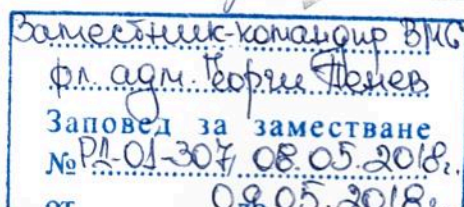 Заместник-командир ВМС
фл. адм. Георги Пенев
Заповед за заместване
№ РД-01-307/ 08.05.2018г.
от 09.05.2018г.